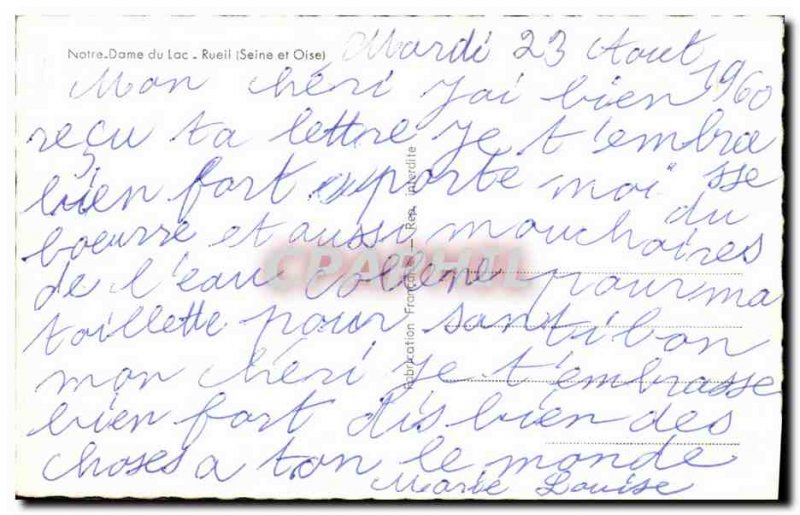 Notre-Dame du Lac - Rueil (Seine et Oise)
Mardi 23 Aout
1960
Mon chéri jai bien
reçu ta lettre je t'embra
sse
bien fort aporte moi du
boeurre et aussi mouchoires
de l'eau collene pour ma
toillette pour santi bon
mon chéri je t'embrasse
bien fort dis bien des
choses a ton le monde
Marie Louise
Fabrication Française - Rep. interdite
CPAPHIL